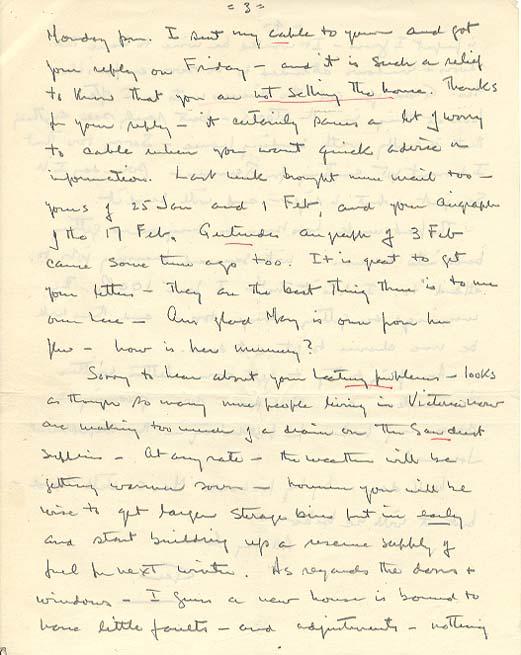 = 3 =
Monday pm. I sent my cable to youm and got
your reply on Friday - and it is such a relief
to know that you are not selling the house. Thanks
for your reply - it certainly saves a lot of worry
to cable when you want quick advice or
information. Last week brought more mail too -
yours of 25 Jan and 1 Feb, and your airgraph
of the 17 Feb. Gertrudes airgraph of 3 Feb
came some time ago too. It is great to get
your letters - they are the best thing there is to me
over here - Am glad May is over from her
flu - how is her mummy?
Sorry to hear about your heating problems - looks
as though so many more people living in Victoria now
are making too much of a drain on the Sawdust
supplies - At any rate - the weather will be
getting warmer soon - however you will be
wise to get larger storage bins put in early
and start building up a reserve supply of
fuel for next winter. As regards the doors +
windows - I guess a new house is bound to
have little faults - and adjustments - nothing